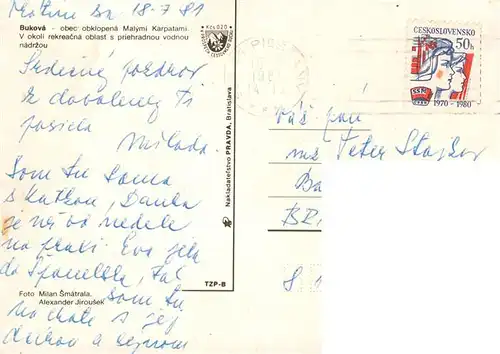 18-7-81
Buková - obec obklopená Malými Karpatami.
V okolí rekreačná oblast s priehradnou vodnou
nádržou
Srdečný pozdrav
z dovolenej Ti
posiela
Milada.
Som tu sama
s Katkou, Danka
je už od nedele
na praxi. Eva
do Španielska,
som tu
na chate s jej
dcérou a synom
Foto Milan Šmátrala,
Alexander Jiroušek
TZP-B
Nakladateľstvo PRAVDA, Bratislava
Kčs 0,20
ČESKOSLOVENSKO
50h
SSM
1970 - 1980
Váž. pan
Peter
Ba
BR
8 1